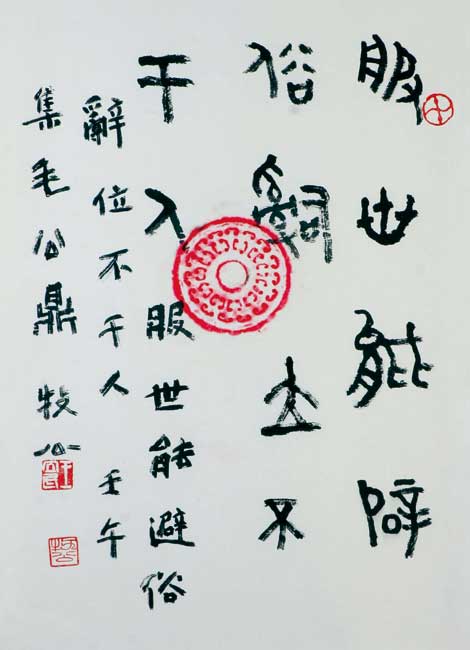 服世能辟
俗辭立不
干人 服世能避俗
辭位不干人 壬午
集毛公鼎 牧公